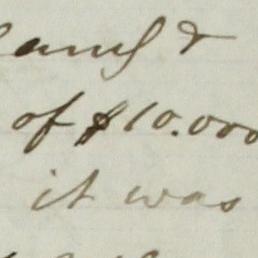 &
of $10.000
it was